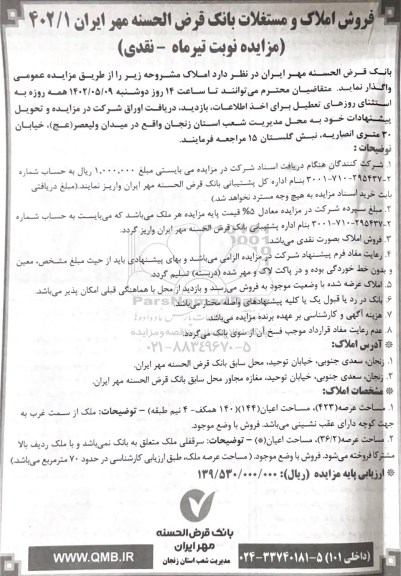 فروش املاک و مستغلات بانک قرض الحسنه مهر ایران ۴۰۲/۱
(مزایده نوبت تیرماه - نقدی)
بانک قرض الحسنه مهر ایران در نظر دارد املاک مشروحه زیر را از طریق مزایده عمومی
واگذار نماید. متقاضیان محترم می‌توانند تا ساعت ۱۴ روز دوشنبه ۱۴۰۲/۰۵/۰۹ همه روزه به
استثنای روزهای تعطیل برای اخذ اطلاعات، بازدید، دریافت اوراق شرکت در مزایده و تحویل
پیشنهادات خود به محل مدیریت شعب استان زنجان واقع در میدان ولیعصر(عج)، خیابان
۳۰ متری انصاریه، نبش گلستان ۱۵ مراجعه فرمایند.
توضیحات :
۱. شرکت کنندگان هنگام دریافت اسناد شرکت در مزایده می بایستی مبلغ ۱,۰۰۰,۰۰۰ ریال به حساب شماره
۳۰۰۱-۷۱۰-۲۹۵۴۳۷-۲ بنام اداره کل پشتیبانی بانک قرض الحسنه مهر ایران واریز نمایند.(مبلغ دریافتی
بابت خرید اسناد مزایده به هیچ وجه مسترد نخواهد شد.)
۲. مبلغ سپرده شرکت در مزایده معادل ۵% قیمت پایه مزایده هر ملک می‌باشد که می‌بایست به حساب شماره
۳۰۰۱-۷۱۰-۲۹۵۴۳۷-۲ بنام اداره پشتیبانی بانک قرض الحسنه مهر ایران واریز گردد.
۳. فروش املاک بصورت نقدی می‌باشد.
۴. رعایت مفاد فرم پیشنهاد شرکت در مزایده الزامی می‌باشد و بهای پیشنهادی باید از حیث مبلغ مشخص، معین
و بدون خط خوردگی بوده و در پاکت لاک و مهر شده (دربسته) تسلیم گردد.
۵. املاک عرضه شده با وضعیت موجود به فروش می‌رسند و بازدید از محل با هماهنگی قبلی امکان پذیر می‌باشد.
۶. بانک در رد یا قبول یک یا کلیه پیشنهادهای واصله مختار می‌باشد.
۷. هزینه آگهی و کارشناسی بر عهده برنده مزایده می‌باشد.
۸. عدم رعایت مفاد قرارداد موجب فسخ آن از سوی بانک می‌گردد.
۰۲۱-۸۸۳۴۹۶۷۰-۵
آدرس املاک:
۱. زنجان، سعدی جنوبی، خیابان توحید، محل سابق بانک قرض الحسنه مهر ایران.
۲. زنجان، سعدی جنوبی، خیابان توحید، مغازه مجاور محل سابق بانک قرض الحسنه مهر ایران.
مشخصات املاک:
۱. مساحت عرصه(۴۲۳)، مساحت اعیان(۱۴۴)(۱۴۰ همکف- ۴ نیم طبقه) - توضیحات: ملک از سمت غرب به
جهت کوچه دارای عقب نشینی می‌باشد. فروش با وضع موجود.
۲. مساحت عرصه(۳۶/۲)، مساحت اعیان(*) - توضیحات: سرقفلی ملک متعلق به بانک نمی‌باشد و با ملک ردیف بالا
مشترکا فروخته می‌شود. فروش با وضع موجود.( مساحت عرصه ملک، طبق ارزیابی کارشناسی در حدود ۷۰ مترمربع می‌باشد.)
ارزیابی پایه مزایده (ریال): ۱۳۹/۵۳۰/۰۰۰/۰۰۰
بانک قرض الحسنه
مهر ایران
مدیریت شعب استان زنجان
WWW.QMB.IR
۰۲۴-۳۳۷۴۰۱۸۱-۵ (داخلی ۱۰۱)